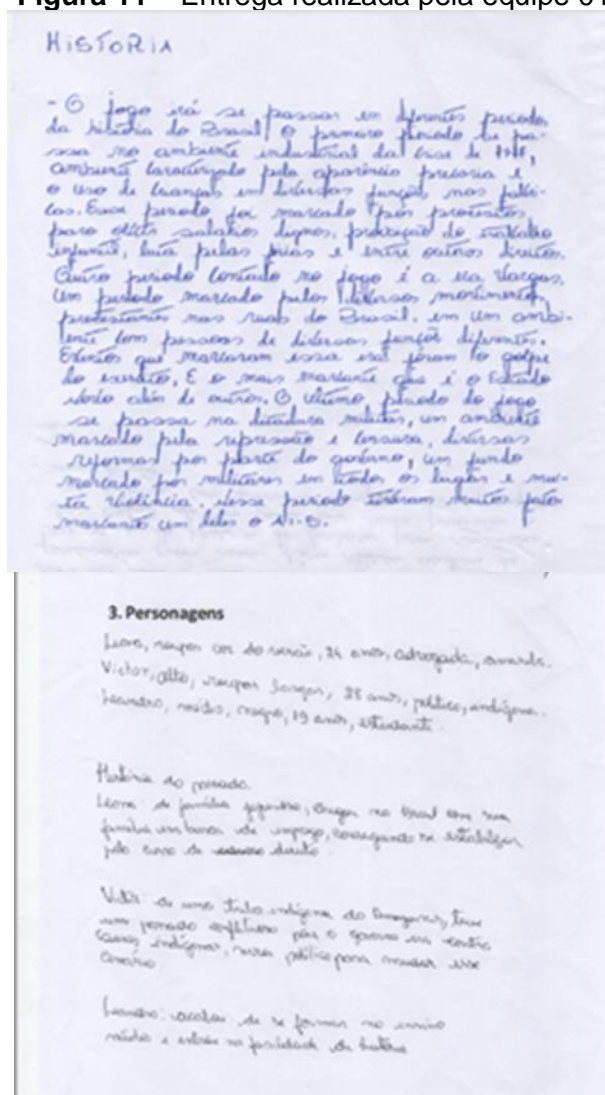 Figura 11 – Entrega realizada pela equipe
HISTORIA
- O jogo irá se passar em diferentes periodos
da historia do Brasil, o primeiro periodo se pa-
ssa no ambiente industrial da crise de
ambiente caracterizado pela aparencia precaria e
o uso de crianças em diversas funções nas fabri-
cas. Esse periodo foi marcado por protestos,
para obter salarios dignos, proibição do trabalho
infantil, luta pelas e entre outros direitos.
Outro periodo contado no jogo é a era Vargas,
um periodo marcado pelos diversos movimentos
nas ruas do Brasil. em um ambi-
ente com pessoas de diversas funções diferentes.
Eventos que marcaram essa era foram o golpe
do exercito, E o mais marcante que é o Estado
além de outros. O ultimo periodo do jogo
se passa na ditadura militar, um ambiente
marcado pela repressão e censura, diversas
reformas por parte do governo, um fundo
marcado por militares em todos os lugares e mui-
ta violência. desse periodo tiveram muitos fatos
marcante um deles o
3. Personagens
roupas cor do verão, 24 anos, advogada, amarela.
Victor, alto, roupas largas, 38 anos, politico, indígena.
Leandro, médio, negro, 19 anos, estudante.
História do passado
de família japonesa, chegou no Brasil com sua
família em busca de emprego, conseguindo se estabilizar
pelo curso de direito
de uma tribo indígena do Amazonas, teve
um passado conflituoso pois o governo era contra
causas indígenas, virou politico para mudar esse
cenário
Leandro: acabou de se formar no ensino
médio e entrou na faculdade de história